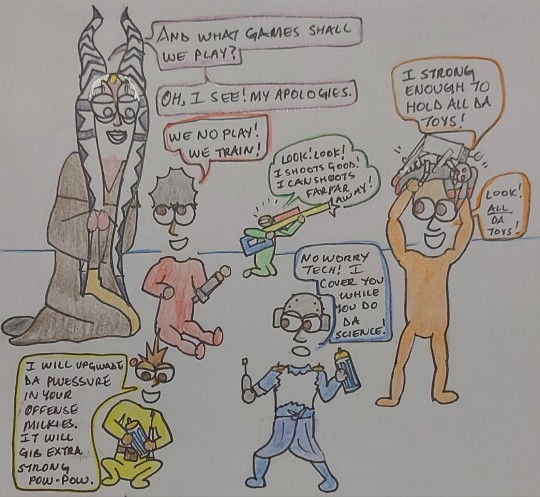 AND WHAT GAMES SHALL
WE PLAY?
OH, I SEE! MY APOLOGIES.
WE NO PLAY!
WE TRAIN!
LOOK! LOOK!
I SHOOTS GOOD!
I CAN SHOOTS
FAR FAR
AWAY!
I STRONG
ENOUGH TO
HOLD ALL DA
TOYS!
LOOK!
ALL
DA
TOYS!
NO WORRY
TECH! I
COVER YOU
WHILE
YOU DO
DA
SCIENCE!
I WILL UPGWADE
DA PWESSURE
IN YOUR
OFFENSE
MILKIES.
IT WILL
GIB EXTRA
STRONG
POW-POW.